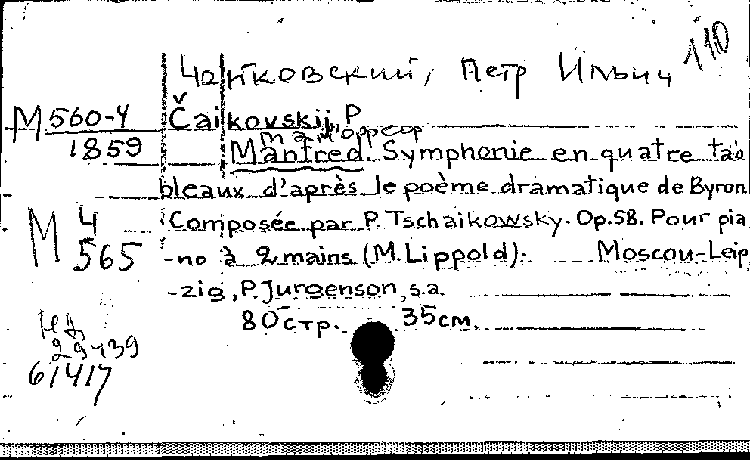 110
Чайковский, Петр Ильич
M 560-4
1859
Čaikovskij, P
Manfred. Symphonie en quatre ta-
bleaux d'après le poème dramatique de Byron.
M 4
565
Composée par P. Tschaikowsky. Op.58. Pour pia
-no à 2 mains (M. Lippold). Moscou-Leip
-zig, P. Jurgenson, s.a.
80 стр. 35 см.
29439
61417